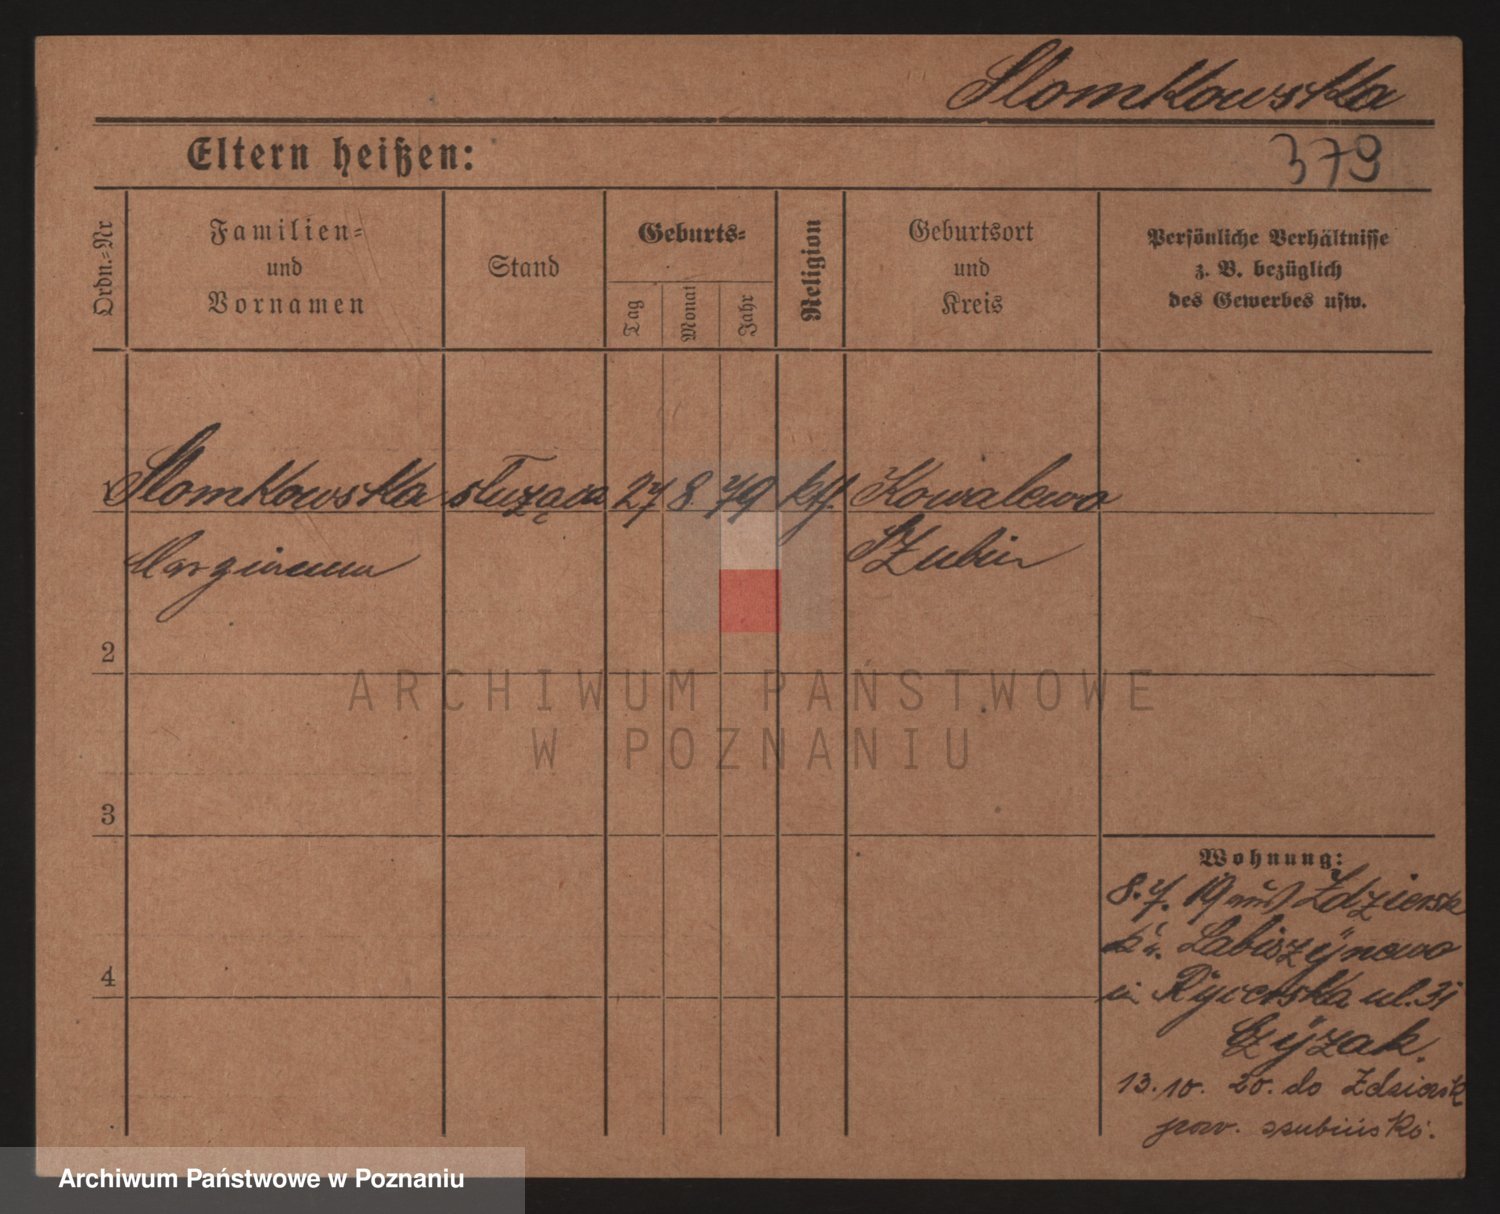 Slomkowska
Eltern heißen:
379
Ordn.=Nr
Familien=
und
Vornamen
Stand
Geburts=
Tag
Monat
Jahr
Religion
Geburtsort
und
Kreis
Persönliche Verhältnisse
z. B. bezüglich
des Gewerbes usw.
Slomkowska służąca 27 8. 79 kth. Kowalewo
Szubin
2
ARCHIWUM PAŃSTWOWE
W POZNANIU
3
4
Wohnung:
8. 7. 19 aus Zdziersk
Labiszÿnowo
in Rycerska ul. 31
Czÿzak.
13. 10. 20. do Zdziersk
pow. szubiński.
Archiwum Państwowe w Poznaniu